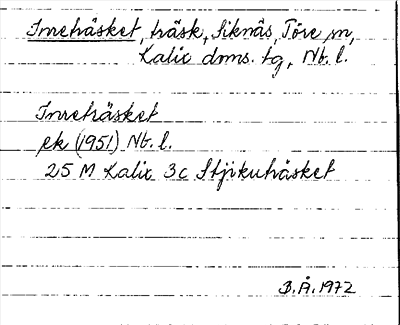 Innehåsket, träsk, Siknäs, Töre sn,
Kalix doms. tg, Nb. l.
Innehåsket
ek (1951) Nb. l.
25 M Kalix 3c Stjikuhåsket
B.Å. 1972